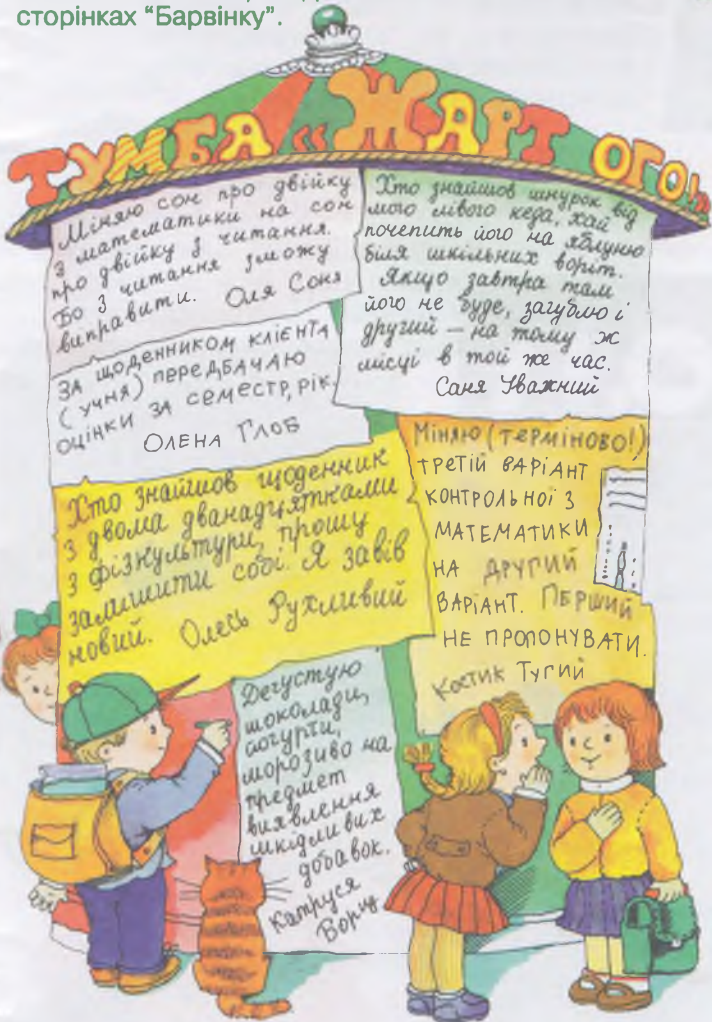 сторінках "Барвінку".
ТУМБА «ЖАРТ ОГО!»
Міняю сон про двійку
з математики на сон
про двійку з читання.
Бо з читання зможу
виправити. Оля Соня
Хто знайшов шнурок від
мого лівого кеда, хай
почепить його на яблуню
біля шкільних воріт.
Якщо завтра там
його не буде, загублю і
другий – на тому ж
місці в той же час.
Саня Уважний
ЗА ЩОДЕННИКОМ КЛІЄНТА
(УЧНЯ) ПЕРЕДБАЧАЮ
ОЦІНКИ ЗА СЕМЕСТР, РІК.
ОЛЕНА ГЛОБ
Хто знайшов щоденник
з двома дванадцятками
з фізкультури, прошу
залишити собі. Я завів
новий. Олесь Рухливий
МІНЯЮ (ТЕРМІНОВО!)
ТРЕТІЙ ВАРІАНТ
КОНТРОЛЬНОЇ З
МАТЕМАТИКИ
НА ДРУГИЙ
ВАРІАНТ. ПЕРШИЙ
НЕ ПРОПОНУВАТИ.
Костик Тугий
Дегустую
шоколади,
йогурти,
морозиво на
предмет
виявлення
шкідливих
добавок.
Катруся
Борщ